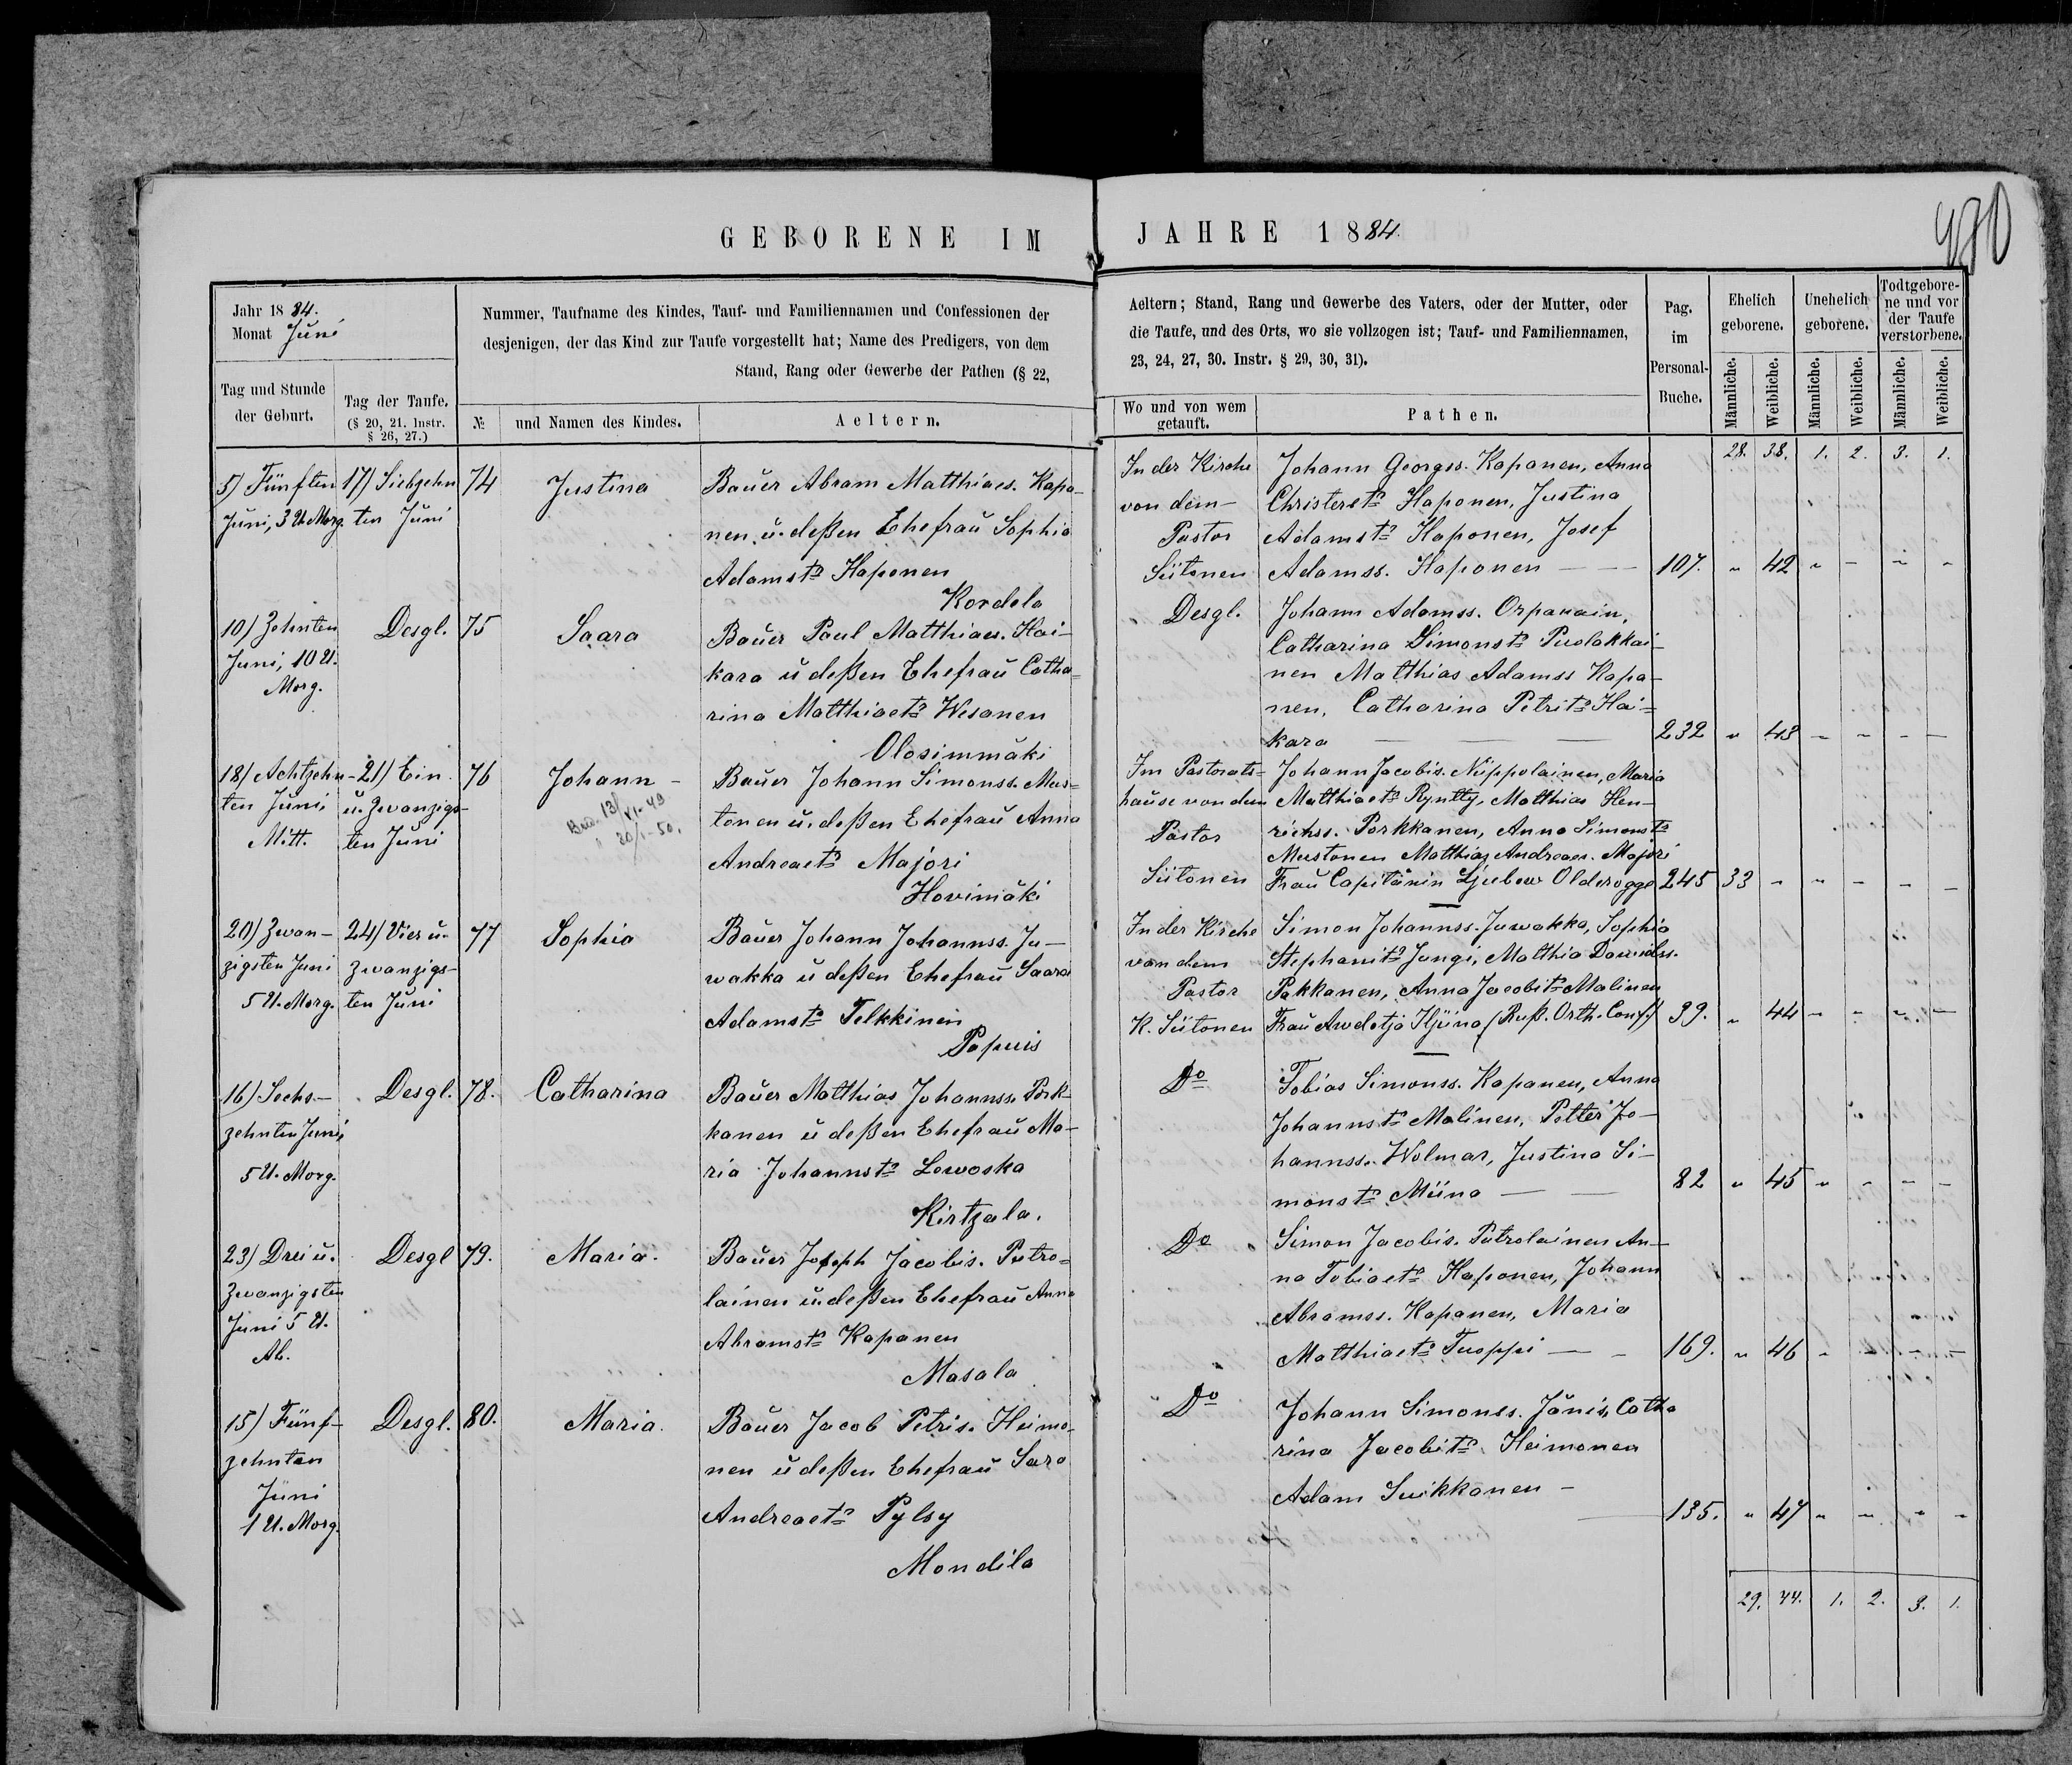 GEBORENE IM JAHRE 1884.
480
Jahr 1884.
Monat Juni
Nummer, Taufname des Kindes, Tauf- und Familiennamen und Confessionen der
desjenigen, der das Kind zur Taufe vorgestellt hat; Name des Predigers, von dem
Stand, Rang oder Gewerbe der Pathen (§ 22,
Tag und Stunde
der Geburt.
Tag der Taufe.
(§ 20, 21. Instr.
§ 26, 27.)
№
und Namen des Kindes.
Aeltern.
Aeltern; Stand, Rang und Gewerbe des Vaters, oder der Mutter, oder
die Taufe, und des Orts, wo sie vollzogen ist; Tauf- und Familiennamen,
23, 24, 27, 30. Instr. § 29, 30, 31).
Wo und von wem
getauft.
Pathen.
Pag.
im
Personal-
Buche.
Ehelich
geborene.
Unehelich
geborene.
Todtgebore-
ne und vor
der Taufe
verstorbene.
Männliche. Weibliche. Männliche. Weibliche. Männliche. Weibliche.
28. 38. 1. 2. 3. 1.
5) Fünften
Juni, 3 U. Morg.
17) Siebzehn
ten Juni
74
Justina
Bauer Abram Matthiaes. Kapa-
nen u. deßen Ehefrau Sophia
Adamstr Haponen
Kordela
In der Kirche
von dem
Pastor
Siitonen
Johann Georgss. Kaponen, Anna
Christerstr Haponen, Justina
Adamstr Haponen, Josef
Adamss. Haponen
107. " 42 " - " "
10) Zehnten
Juni, 10 U.
Morg.
Desgl.
75
Saara
Bauer Paul Matthiaes. Hai-
kara u deßen Ehefrau Catha-
rina Matthiaetr Wesanen
Olosimmäki
Desgl.
Johann Adamss. Orpanain,
Catharina Simonstr Puolakkai-
nen Matthias Adamss Kapa-
nen, Catharina Petritr Hai-
kara
232 " 43 - - - -
18) Achtzehn-
ten Juni,
Mitt.
21) Ein
u. Zwanzigs-
ten Juni
76
Johann
13/VI-49
" 20/1-50.
Bauer Johann Simonss. Mus-
tonen u. deßen Ehefrau Anna
Andreaetr Majori
Hovimäki
Im Pastorats-
hause von dem
Pastor
Siitonen
Johann Jacobis. Nüppolainen, Maria
Matthiaetr Ryntty, Matthias Hen-
richss. Porkkanen, Anna Simonstr
Mustonen Matthias Andreaes. Majori
Frau Capitänin Ljubow Olderogge
245 33 - " - - -
20) Zwan-
zigsten Juni
5 U. Morg.
24) Vier u.
Zwanzigs-
ten Juni
77
Sophia
Bauer Johann Johannss. Ju-
wakka u deßen Ehefrau Saara
Adamstr Telkkinen
Papuis
In der Kirche
von dem
Pastor
K. Siitonen
Simon Johannss. Juwakka, Sophia
Stephanitr Jungi, Matthia Dawidss.
Pakkanen, Anna Jacobitr Malinen
Frau Awdotja Iljina (Ruß. Orth. Conf.)
39. " 44 - - - -
16) Sechs-
zehnten Juni,
5 U. Morg.
Desgl.
78.
Catharina
Bauer Matthias Johannss. Pork-
kanen u deßen Ehefrau Ma-
ria Johannstr Lewoska
Kirtzala.
Do
Tobias Simonss. Kapanen, Anna
Johannstr Malinen, Petter Jo-
hannss. Wolmar, Justina Si-
monstr Miina
82 " 45 " - - -
23) Drei u.
Zwanzigsten
Juni 5 U.
Ab.
Desgl
79.
Maria.
Bauer Joseph Jacobis. Putro-
lainen u. deßen Ehefrau Anna
Abramstr Kapanen
Masala
Do
Simon Jacobis. Putrolainen An-
na Tobiaetr Haponen, Johann
Abramss. Kapanen, Maria
Matthiaetr Tuoppi
169. " 46 " - - -
15) Fünf-
zehnten
Juni
1 U. Morg.
Desgl.
80.
Maria.
Bauer Jacob Petris. Heimo-
nen u deßen Ehefrau Sara
Andreaetr Pylsy
Mondila
Do
Johann Simonss. Jänis, Catha
rina Jacobitr Heimonen
Adam Suikkanen -
135. " 47 " - - -
29. 44. 1. 2. 3. 1.